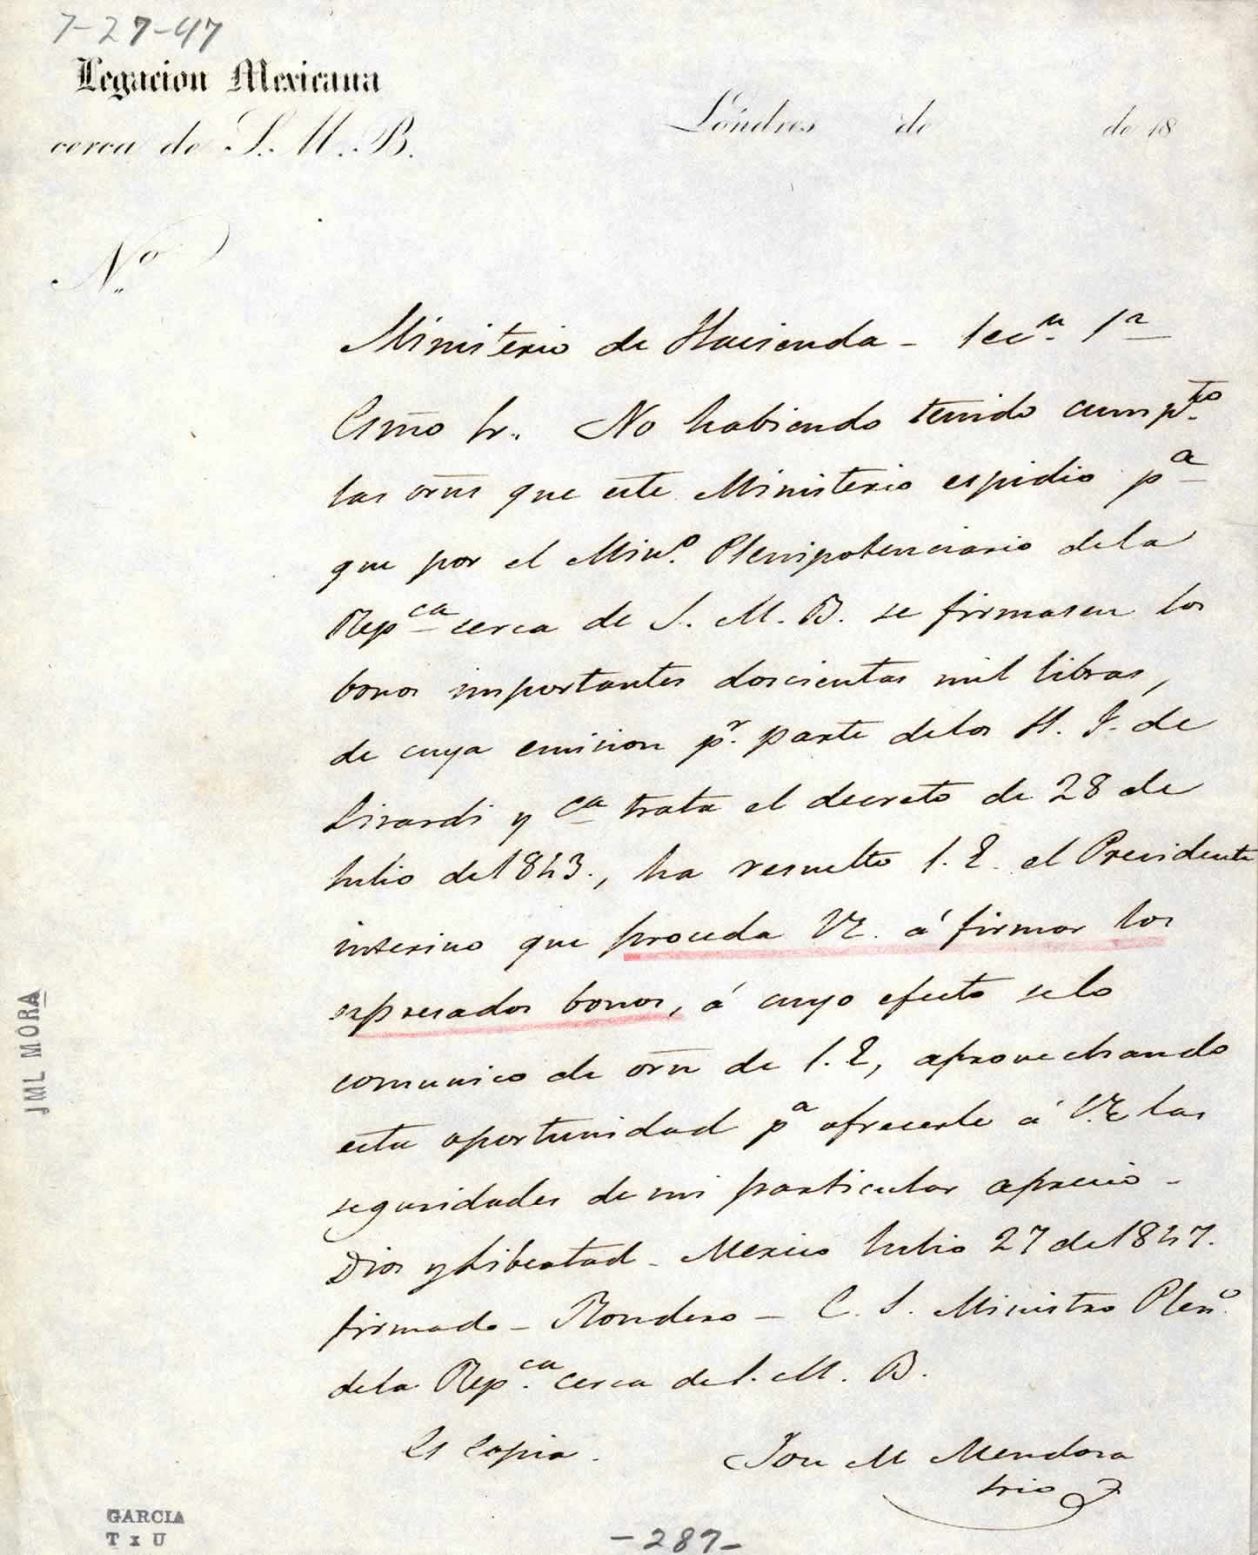 7-27-47
Legacion Mexicana
cerca de S. M. B.
Londres de de 18
Nº
Ministerio de Hacienda - Secn. 1a
Exmo Sr. No habiendo tenido cumpto
las orns que este Ministerio espidio pa
que por el Mino. Plenipotenciario dela
Repca cerca de S. M. B. se firmasen los
bonos importantes doscientas mil libras,
de cuya emision pr. parte delos H. J. de
Lizardi y Ca trata el decreto de 28 de
Julio de 1843., ha resuelto S. E. el Presidente
interino que proceda VE. á firmar los
espresados bonos, á cuyo efecto selo
comunico de orn de S. E, aprovechando
esta oportunidad pa ofrecerle á V.E las
seguridades de mi particular aprecio -
Dios y Libertad - Mexico Julio 27 de 1847.
firmado - Rondero - E. S. Ministro Pleno.
dela Repca. cerca de S. M. B.
Es copia.
José M Mendoza
srio
JML MORA
GARCIA
T x U
-287-